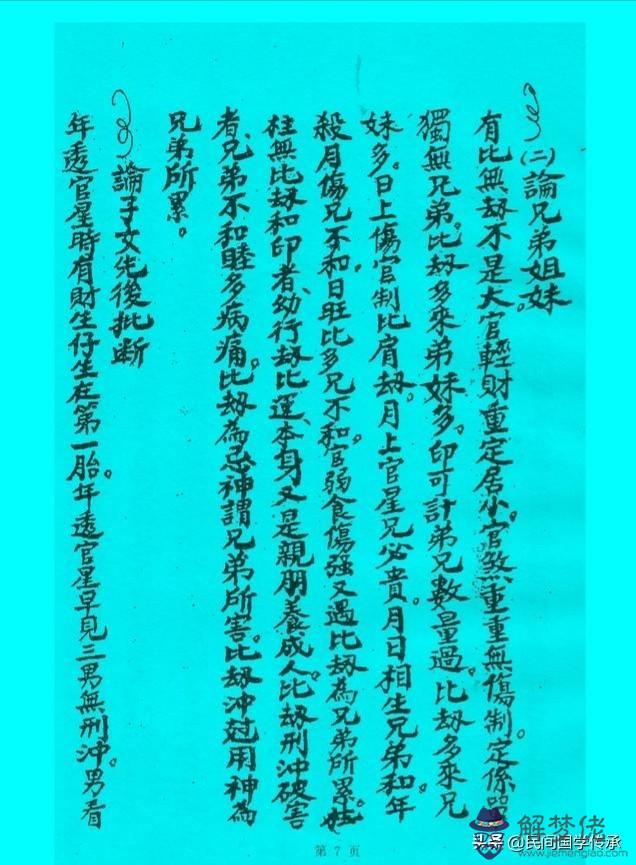 (二)論兄弟姐妹
有比無劫不是大。官輕財重定居小。官煞重重無傷制。定係
獨無兄弟。比劫多來弟妹多。印可計弟兄數量過。比劫多乘兄
妹多。日上傷官制比肩劫。月上官星兄必貴。月日相生兄弟和。年
殺月傷兄不和。日旺比多兄不和。官弱食傷强又遇比劫為兄弟所累。
柱無比劫和印者、幼行劫比運、本身又是親朋養成人。比劫刑沖破害
者、兄弟不和睦多病痛。比劫為忌神謂兄弟所害。比劫沖尅用神為
兄弟所累。
論子女先後批断
年透官星時有財生仔生在第一胎。年透官星早見三男無刑沖。男看
第 7 页
头条 @民间国学传承
解梦佬
www.jiemenglao.com